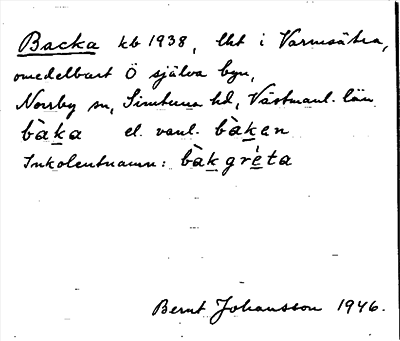 Backa kb 1938, lht i Varmsätra,
omedelbart Ö själva byn,
Norrby sn, Simtuna hd, Västmanl. län
bàka el. vanl. bàken
Inkolentnamn: bàkgrèta
Bernt Johansson 1946.